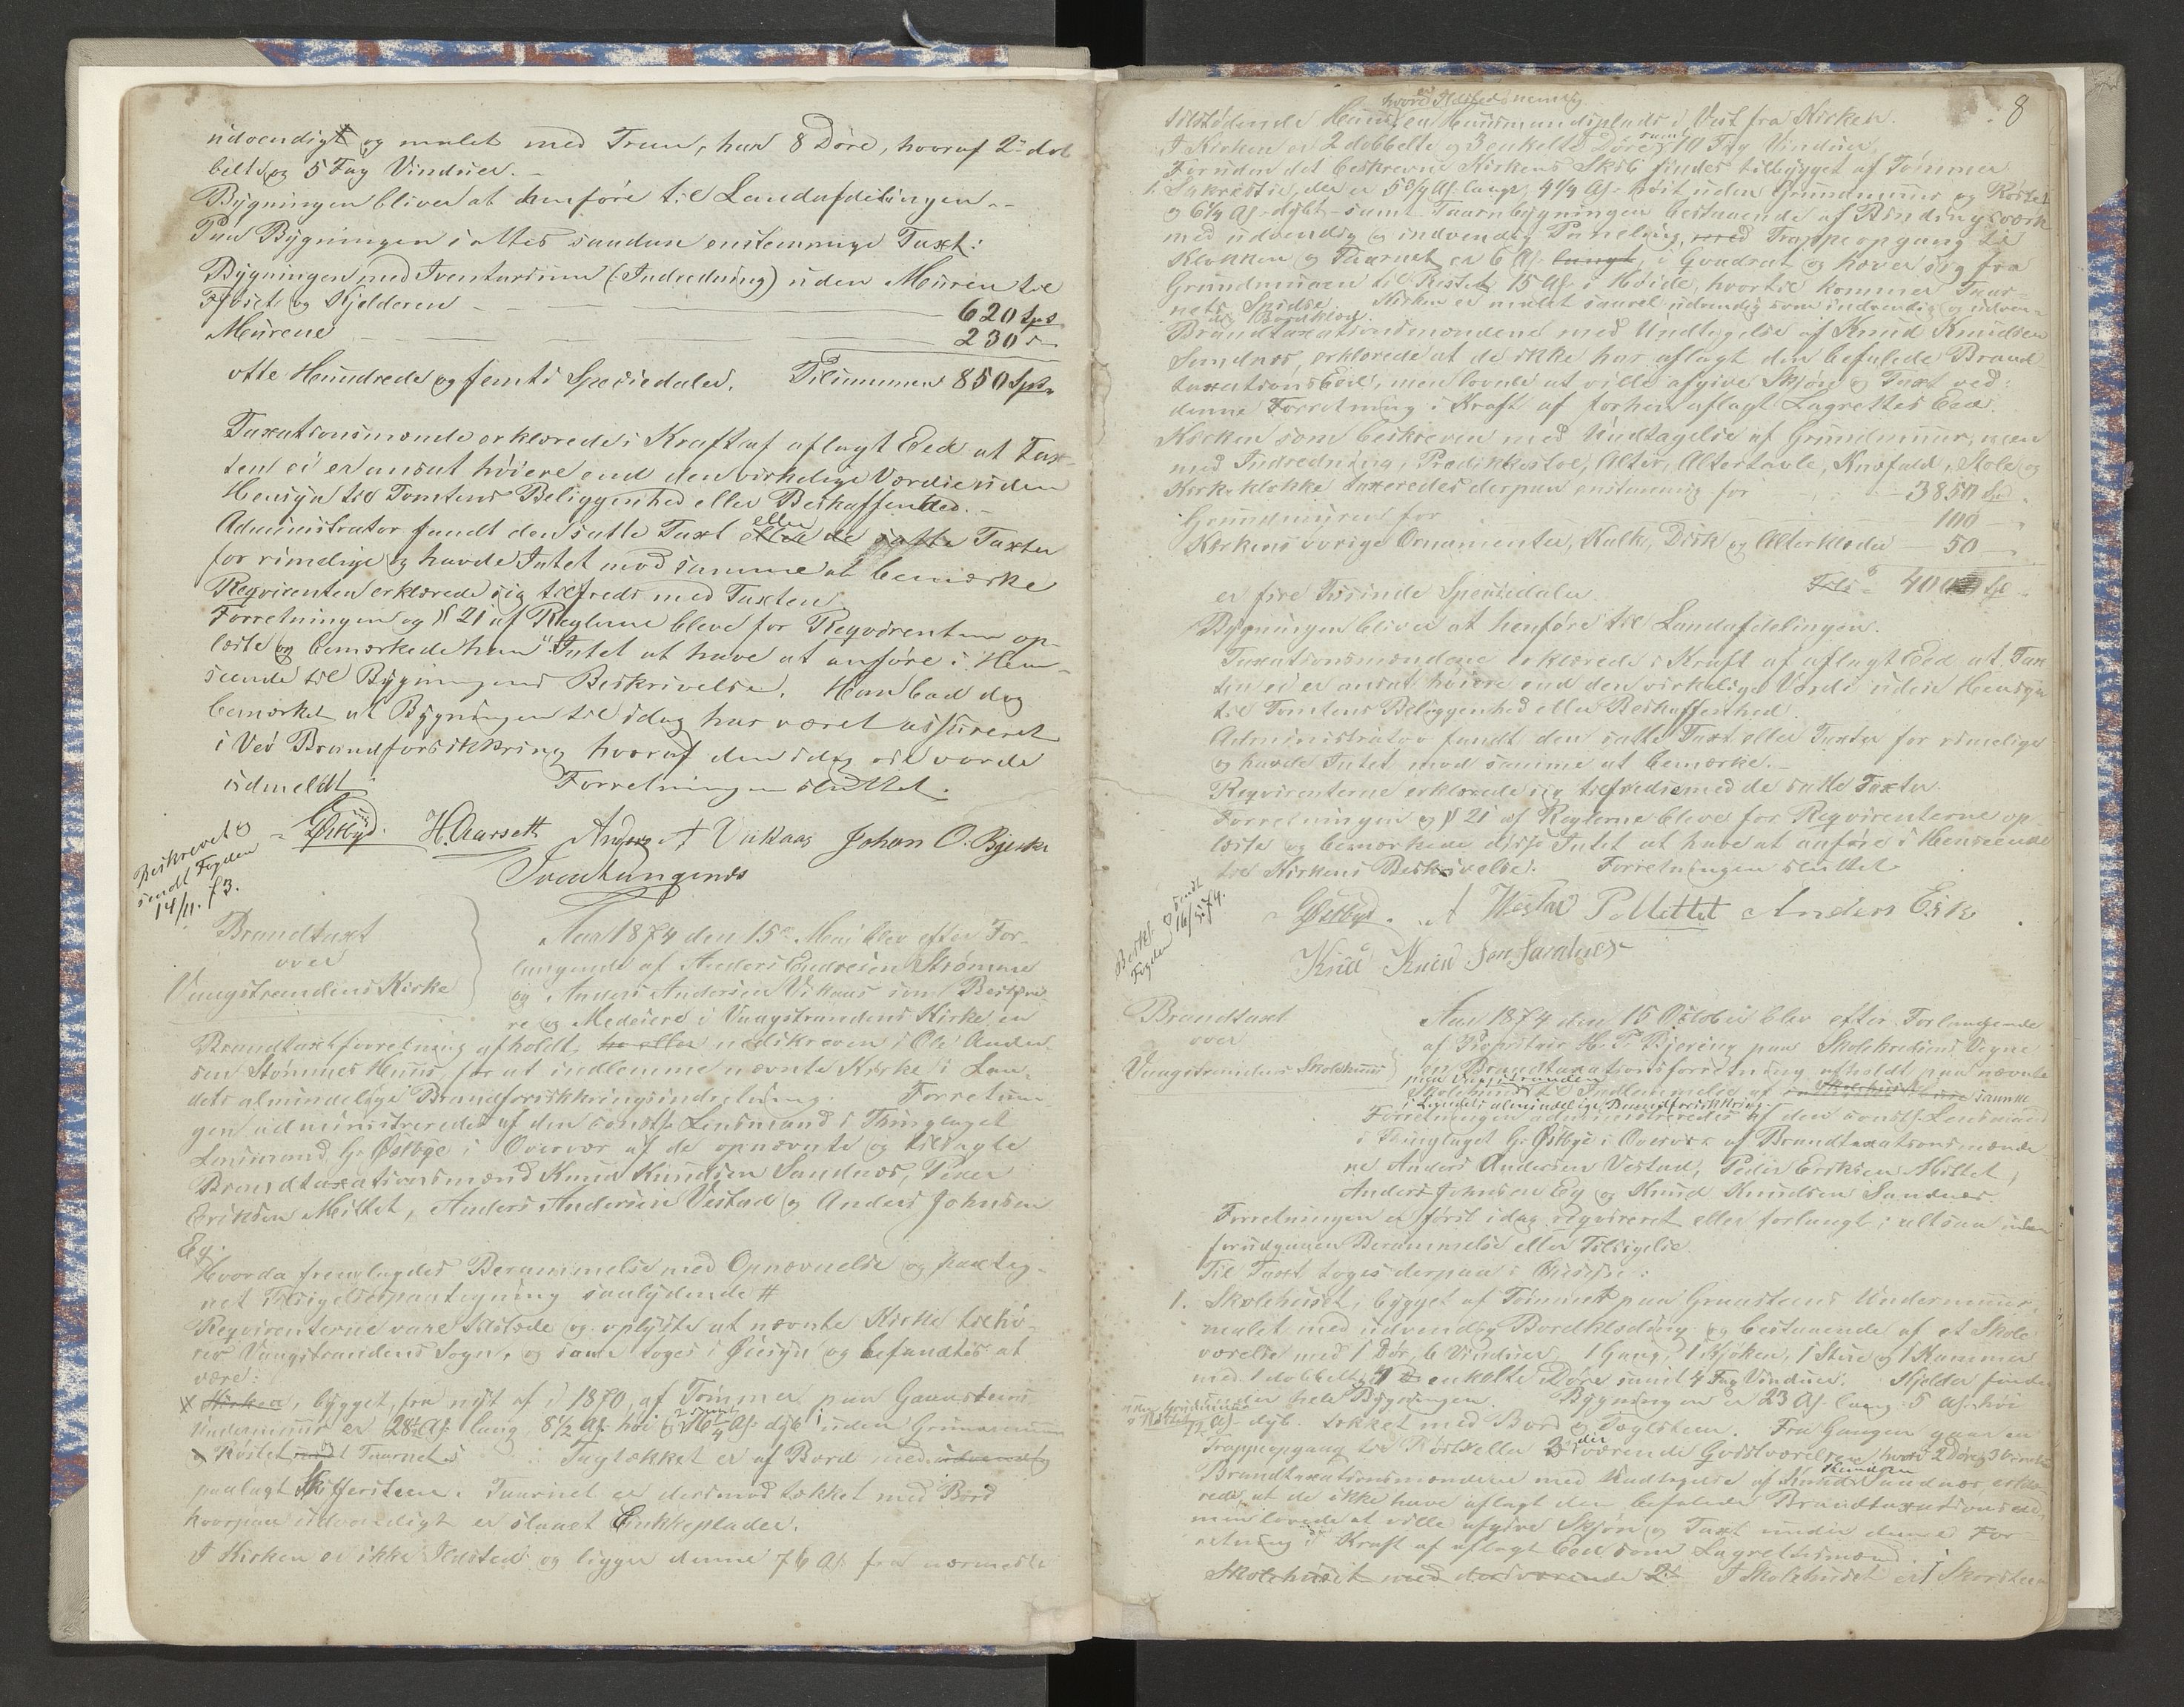 udvendigt og malet med Tran, har 8 Døre, hvoraf 2de dob
belte og 5 Fag Vinduer. –
Bygningen bliver at henføre til Landafdelingen. –
Paa Bygningen sattes saadan enstemmige Taxt:
Bygningen med Inventarium (: Indredning) uden Muren til
Fjøset og Kjelderen — 620 Spd
Murene — 230 "
otte Hundrede og femti Speciedaler. Tilsammen 850 Spd.
Taxationsmænde erklærede i Kraft af aflagt Eed at Tax-
ten ei er ansat høiere end den virkelige Værdie uden
Hensyn til Tomtens Beliggenhed eller Beskaffenhed. –
Administrator fandt den satte Taxt eller de satte Taxter
for rimelige og havde Intet mod samme at bemærke
Reqvirenten erklærede sig tilfreds med Taxten
Forretningen og § 21 af Reglerne bleve for Reqvirenten op-
læste og bemærkede han Intet at have at anføre i Hen-
seende til Bygningens Beskrivelse. Han bad dog
bemærket at Bygningen til idag har været assureret
i Veø Brandforsikkring hvoraf den idag vil vorde
udmeldt. Forretningen sluttet.
G Østbye. H. Aarseth Anders A Vikaas Johan O. Bjerke
Beskrevet &
sendt Fogden
14/11. 73.
Brandtaxt
over
Vaagstrandens Kirke
Aar 1874 den 15de Mai blev efter For-
langende af Anders Endresen Strømme
og Anders Andersen Vikaas som Besty-
re og Medeiere i Vaagstrandens Kirke en
Brandtaxtforretning afholdt, nedskreven i Ole Ander
sen Stommes Huus, for at indlemme nævnte Kirke i Lan-
dets almindelige Brandforsikkringsindretning. Forretnin-
gen administreredes af den const. Lensmand i Thinglaget
Lensmand G. Østbye i Overvær af de opnævnte og tilsagte
Brandtaxationsmænd Knud Knudsen Sandnes, Peder
Eriksen Mittet, Anders Andersen Vestad og Anders Johnsen
Eg.
Hvorda fremlagdes Berammelse med Opnævnelse og paateg-
net Tilsigelsespaategning saalydende #
Reqvirenterne vare tilstede og oplyste at nævnte Kirke tilhø-
rer Vaagstrandens Sogn, og samt toges i Øiesyn og befandtes at
være:
Kirken, bygget fra nyt af i 1870, af Tømmer paa Graasteens
Undermuur er 28½ Al. lang 8½ Al. høi og 16¼ Al. dyb uden Grundmuur
og Røstet Taarnets Taglækket er af Bord med udvendig
paalagt Skiffersteen. Taarnet er derimod tækket med Bord
hvorpaa udvendigt er slaaet Zinkkeplader.
I Kirken er ikke Ildsted og ligger denne 76 Al. fra nærmeste
8
hvori er Ildsted nemlig
tilstødende Huus, en Huusmandsplads i Vest fra Kirken.
I Kirken er 2 dobbelte og 3 enkelte Døre samt 10 Fag Vinduer.
Foruden det beskrevne Kirkens Skib findes tilbygget af Tømmer
1. Sakristie, der er 5¾ Al. langt, 4¼ Al. høit uden Grundmuur og Røstet
og 6¼ Al. dybt – samt Taarnbygningen bestaaende af Bindingsværk
med udvendig og indvendig Paneling, med Trappeopgang til
Klokken og Taarnet er 6 Al. langt, i Qvadrat og hæver sig fra
Grundmuren til Røstet 15 Al. i Høide, hvortil kommer Taar-
nets Spidse. Kirken er malet saavel udvendig som indvendig og udven-
dig Bordklædt.
Brandtaxationsmændene med Undtagelse af Knud Knudsen
Sandnes, erklærede at de ikke har aflagt den befalede Brand
taxationsEed, men lovede at ville afgive Skjøn og Taxt ved
denne Forretning i Kraft af forhen aflagt Lagrettes Eed.
Kirken som beskreven med Undtagelse af Grundmuur, men
med Indredning, Prædikestol, Alter, Altertavle, Knæfald, Stole og
Kirkeklokke taxeredes derpaa enstemmig for — 3850 Spd
Grundmuren for — 100 —
Kirkens øvrige Ornamenter, Kalk, Disk og Alterklæder 50 —
er fire Tusinde Speciedaler. Tils. 4000 Spd
Bygningen bliver at henføre til Landafdelingen.
Taxationsmændene erklærede i Kraft af aflagt Eed at Tax
ten ei er ansat høiere end den virkelige Værdi uden Hensyn
til Tomtens Beliggenhed eller Beskaffenhed.
Administrator fandt den satte Taxt eller Taxter for rimelige
og havde Intet mod samme at bemærke. –
Reqvirenterne erklærede sig tilfredse med de satte Taxter.
Forretningen og § 21 af Reglerne bleve for Reqvirenterne op-
læste og bemærkede disse Intet at have at anføre i Henseende
til Kirkens Beskrivelse. Forretningen sluttet
Beskr. & sendt
Fogden 16/5 74.
G Østbye. A Westad P Mittet Anders Eik
Knud Knud sen Sandnes
Brandtaxt
over
Vaagstrandens Skolehuus
Aar 1874 den 15 October blev efter Forlangende
af Kirkesanger H. T. Bjering paa Skolekredsens Vegne
en Brandtaxationsforretning afholdt paa nævnte
paa Vaagstranden
Skolehuus til Indlemmelse af samme
i Landets almindelige Brandforsikkring
Forretningen administreredes af den const. Lensmand
i Thinglaget G. Østbye i Overvær af Brandtaxationsmænde
ne Anders Andersen Vestad, Peder Eriksen Mittet,
Anders Johnsen Eg og Knud Knudsen Sandnes.
Forretningen er først idag reqvireret eller forlangt, altsaa uden
forudgaaen Berammelse eller Tilsigelse.
Til Taxt toges derpaa i Øiesyn:
1. Skolehuset, bygget af Tømmer paa Graasteens Undermuur,
malet med udvendig Bordklædning og bestaaende af et Skole
værelse med 1 Dør, 6 Vinduer, 1 Gang, 1 Kjøken, 1 Stue og 1 Kammer
med 1 dobbelt, 4 enkelte Døre samt 4 Fag Vinduer. Kjelder findes
under hele Bygningen. Bygningen er 23 Al. lang 5 Al. høi
Al. dyb. tækket med Bord og Taglsteen. Fra Gangen gaar en
Trappeopgang til Røstet eller 2 derværende Qvistværelser, hvori 2 Døre og 3 Vinduer
Brandtaxationsmændene med Undtagelse af Knud Knudsen Sandnes erklæ-
rede, at de ikke have aflagt den befalede Brandtaxationseed,
men lovede at ville afgive Skjøn og Taxt under denne For-
retning i Kraft af aflagt Eed som Lagrettesmænd.
Skolehuset med derværende 2de I Skolehuset er 1 Skorsteen